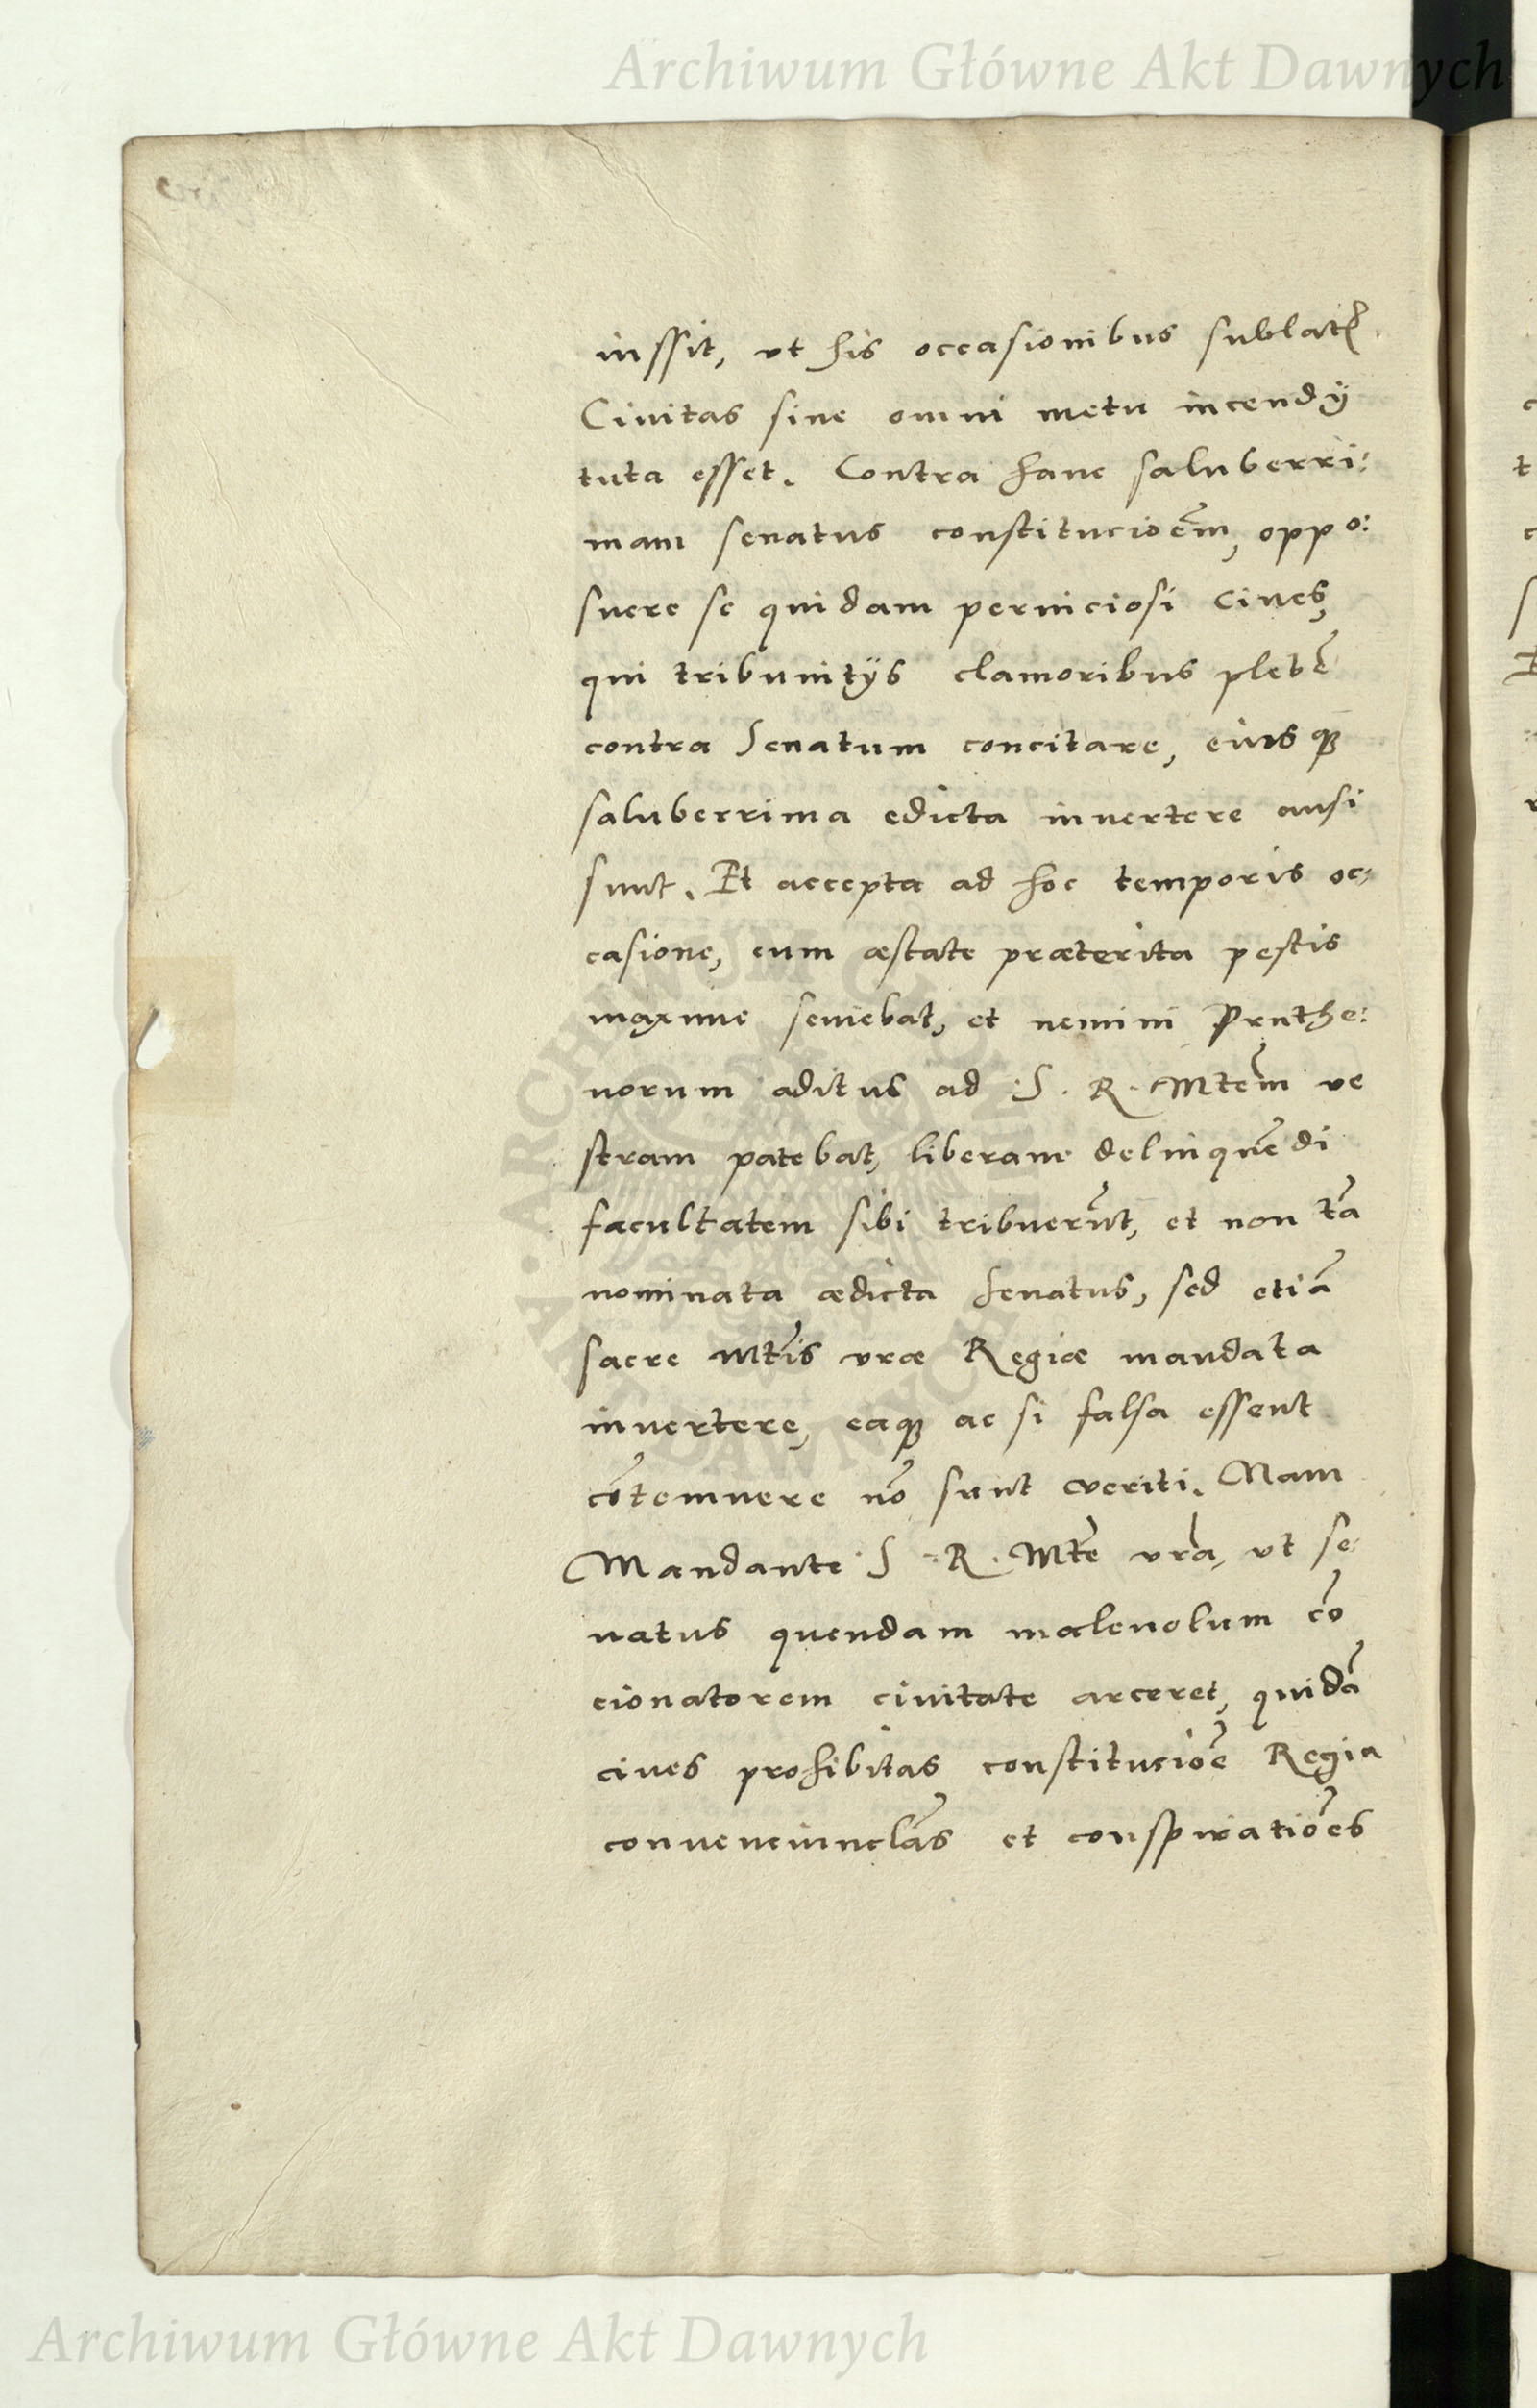 Archiwum Główne Akt Dawnych
iussit, vt his occasionibus sublat(is)
Ciuitas sine omni metu incendij
tuta esset. Contra hanc saluberri:
mam senatus constitucioe͂m, oppo:
suere se quidam perniciosi Ciues,
qui tribunitijs clamoribus plebe͂
contra Senatum concitare, eiusq(ue)
saluberrima edicta inuertere ausi
sunt. Et accepta ad hoc temporis oc-
casione, cum æstate præterita pestis
maxime seuiebat, et nemini Pruthe:
norum aditus ad S. R. Mte͂m ve
stram patebat, liberam delinque͂di
facultatem sibi tribueru͂t, et non ta͂
nominata ædicta Senatus, sed etia͂
sacre Mt͂is vræ Regiæ mandata
inuertere, eaq(ue) ac si falsa essent
co͂temnere no͂ sunt veriti. Nam
Mandante S. R. Mte͂ vra͂, vt se-
natus quendam maleuolum co͂
cionatorem ciuitate arceret, quida͂
ciues prohibitas constitucioe͂ Regia
conueneiuncla͂s et conspiratio͂es
ARCHIWUM GŁÓWNE AKT DAWNYCH
Archiwum Główne Akt Dawnych